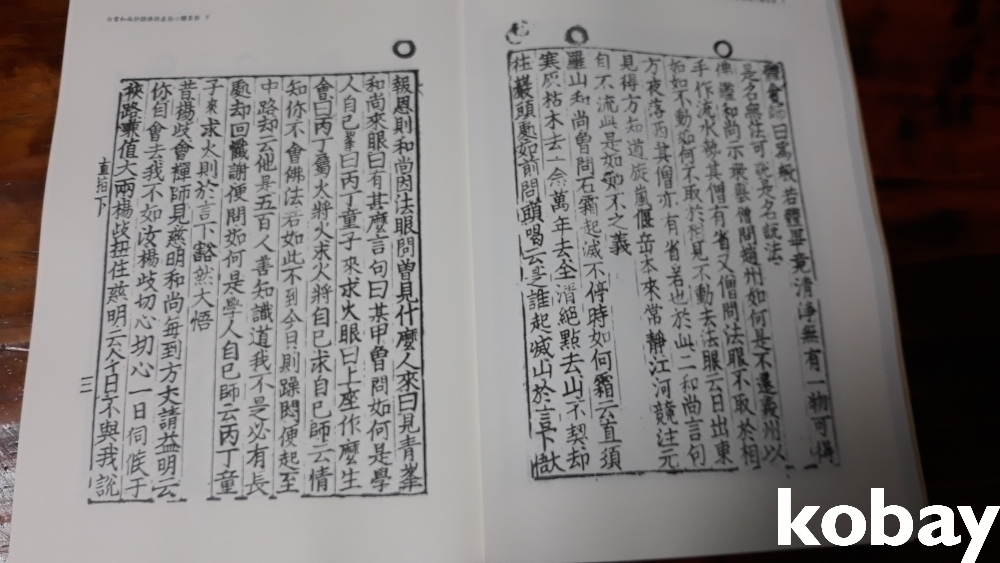 體會師曰爲般若體畢竟清淨無有一物可得
是名無法可說是名說法
佛鑑和尚示衆擧僧問趙州如何是不遷義州以
手作流水勢其僧有省又僧問法眼不取於相
如如不動如何不取於相見不動去法眼云日出東
方夜落西其僧亦有省若也於此二和尚言句
見得方知道旋嵐偃岳本來常靜江河競注元
自不流此是如如不之義
羅山和尚曾問石霜起滅不停時如何霜云直須
寒灰枯木去一念萬年去全清絕點去山不契却
往巖頭處如前問頭喝云是誰起滅山於言下大
白雲和尚抄錄佛祖直指心體要節 下
報恩則和尚因法眼問曾見什麼人來曰見青峯
和尚來眼曰有甚麼言句曰某甲曾問如何是學
人自己峯曰丙丁童子來求火眼曰上座作麼生
會曰丙丁屬火將火求火將自己求自己師云情
知你不會佛法若如此不到今日則躁悶便起至
中路却云他是五百人善知識道我不是必有長
處却回懺謝便問如何是學人自己師云丙丁童
子來求火則於言下豁然大悟
昔楊歧會禪師見慈明和尚每到方丈請益明云
你自會去我不如汝楊歧切心切心一日伺候于
挾路乘值大雨楊歧扭住慈明云今日不與我說
直指下
三
kobay